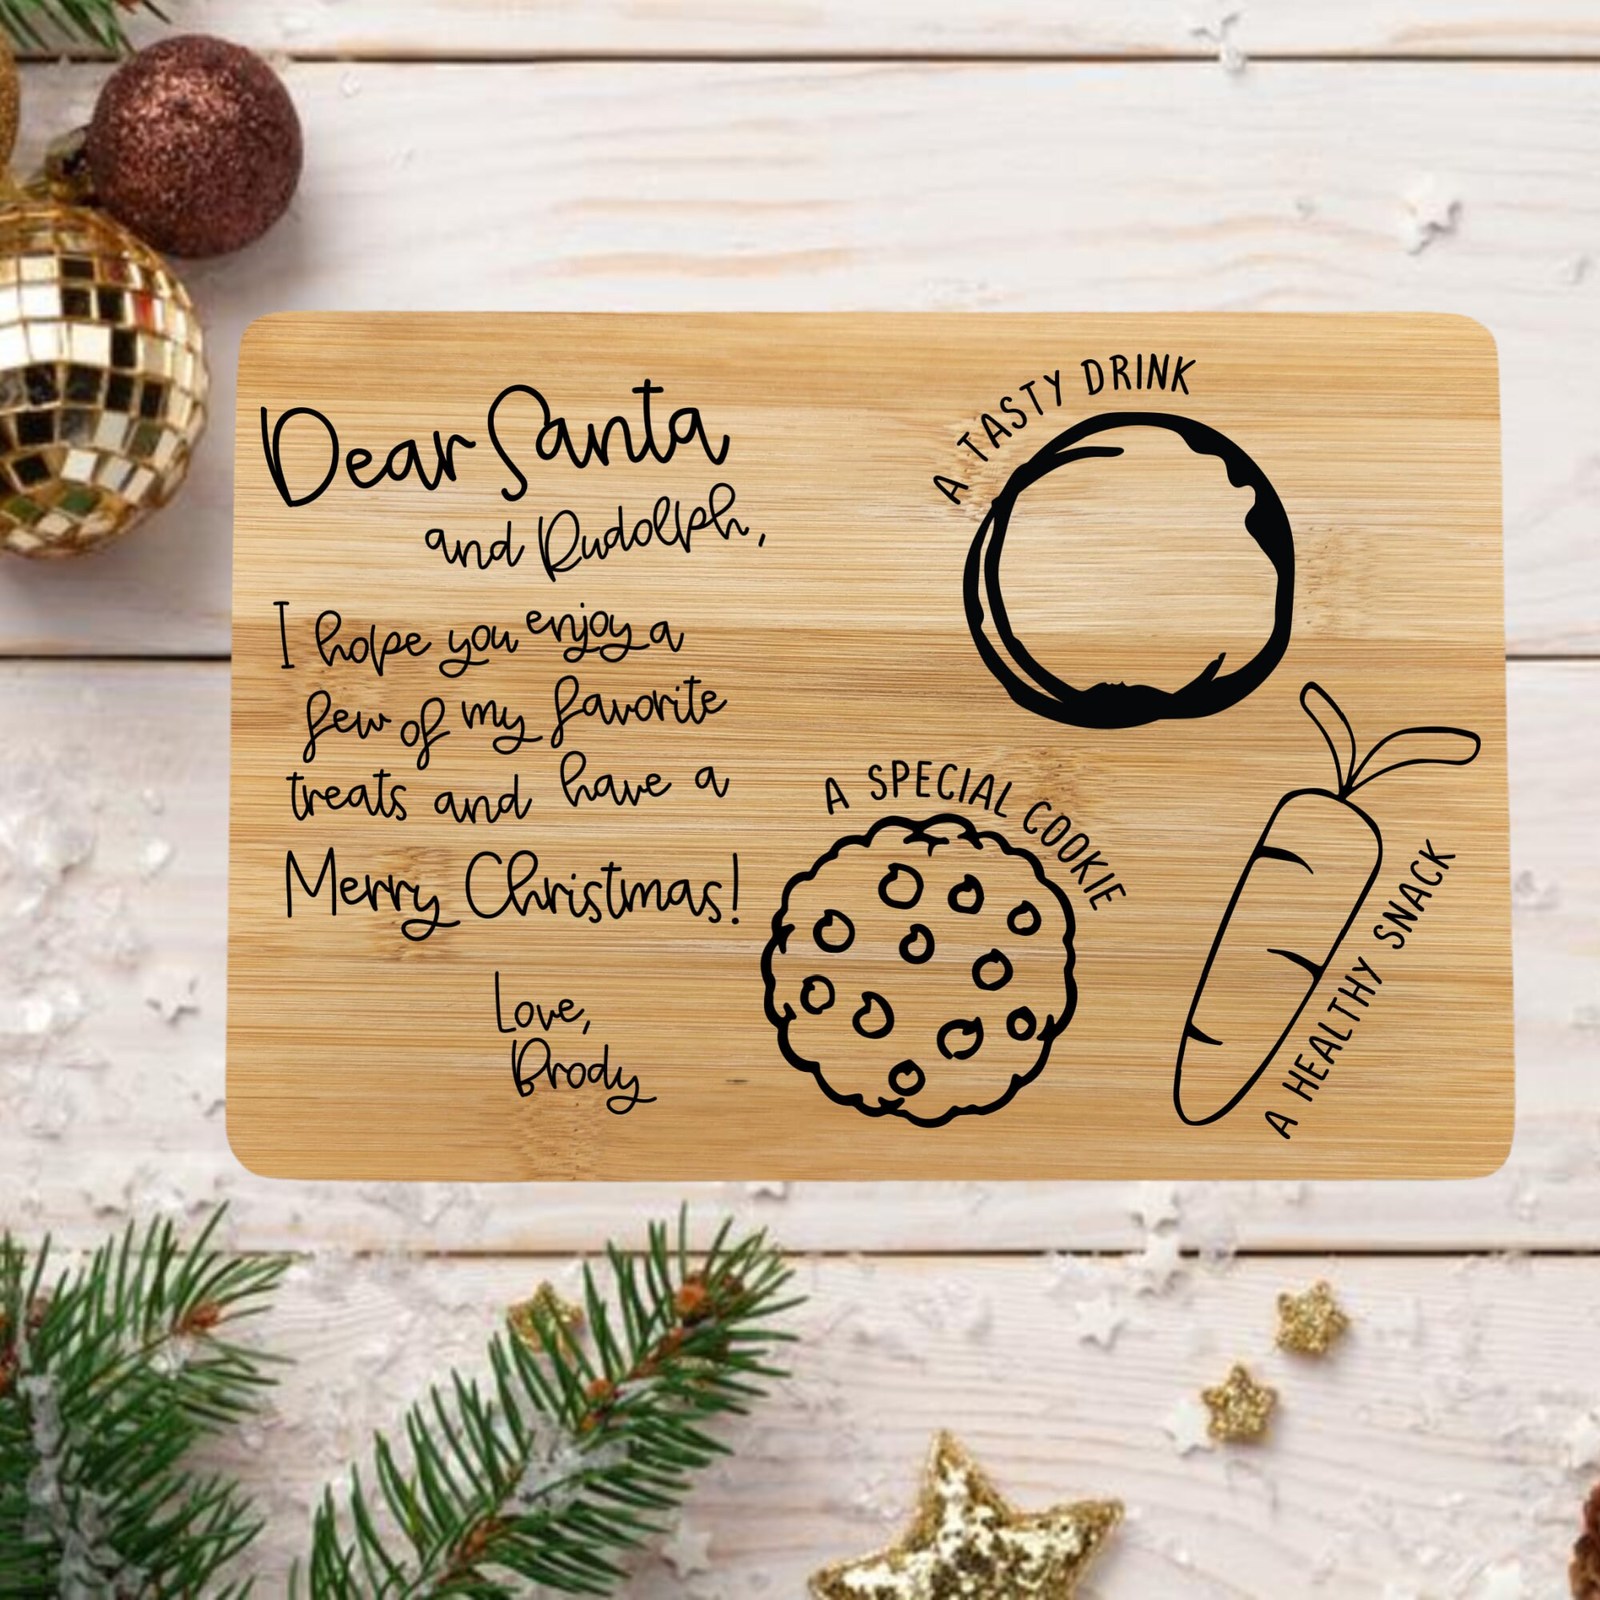 Dear Santa
and Rudolph,
I hope you enjoy a
few of my favorite
treats and have a
Merry Christmas!
Love,
Brody
A TASTY DRINK
A SPECIAL COOKIE
A HEALTHY SNACK